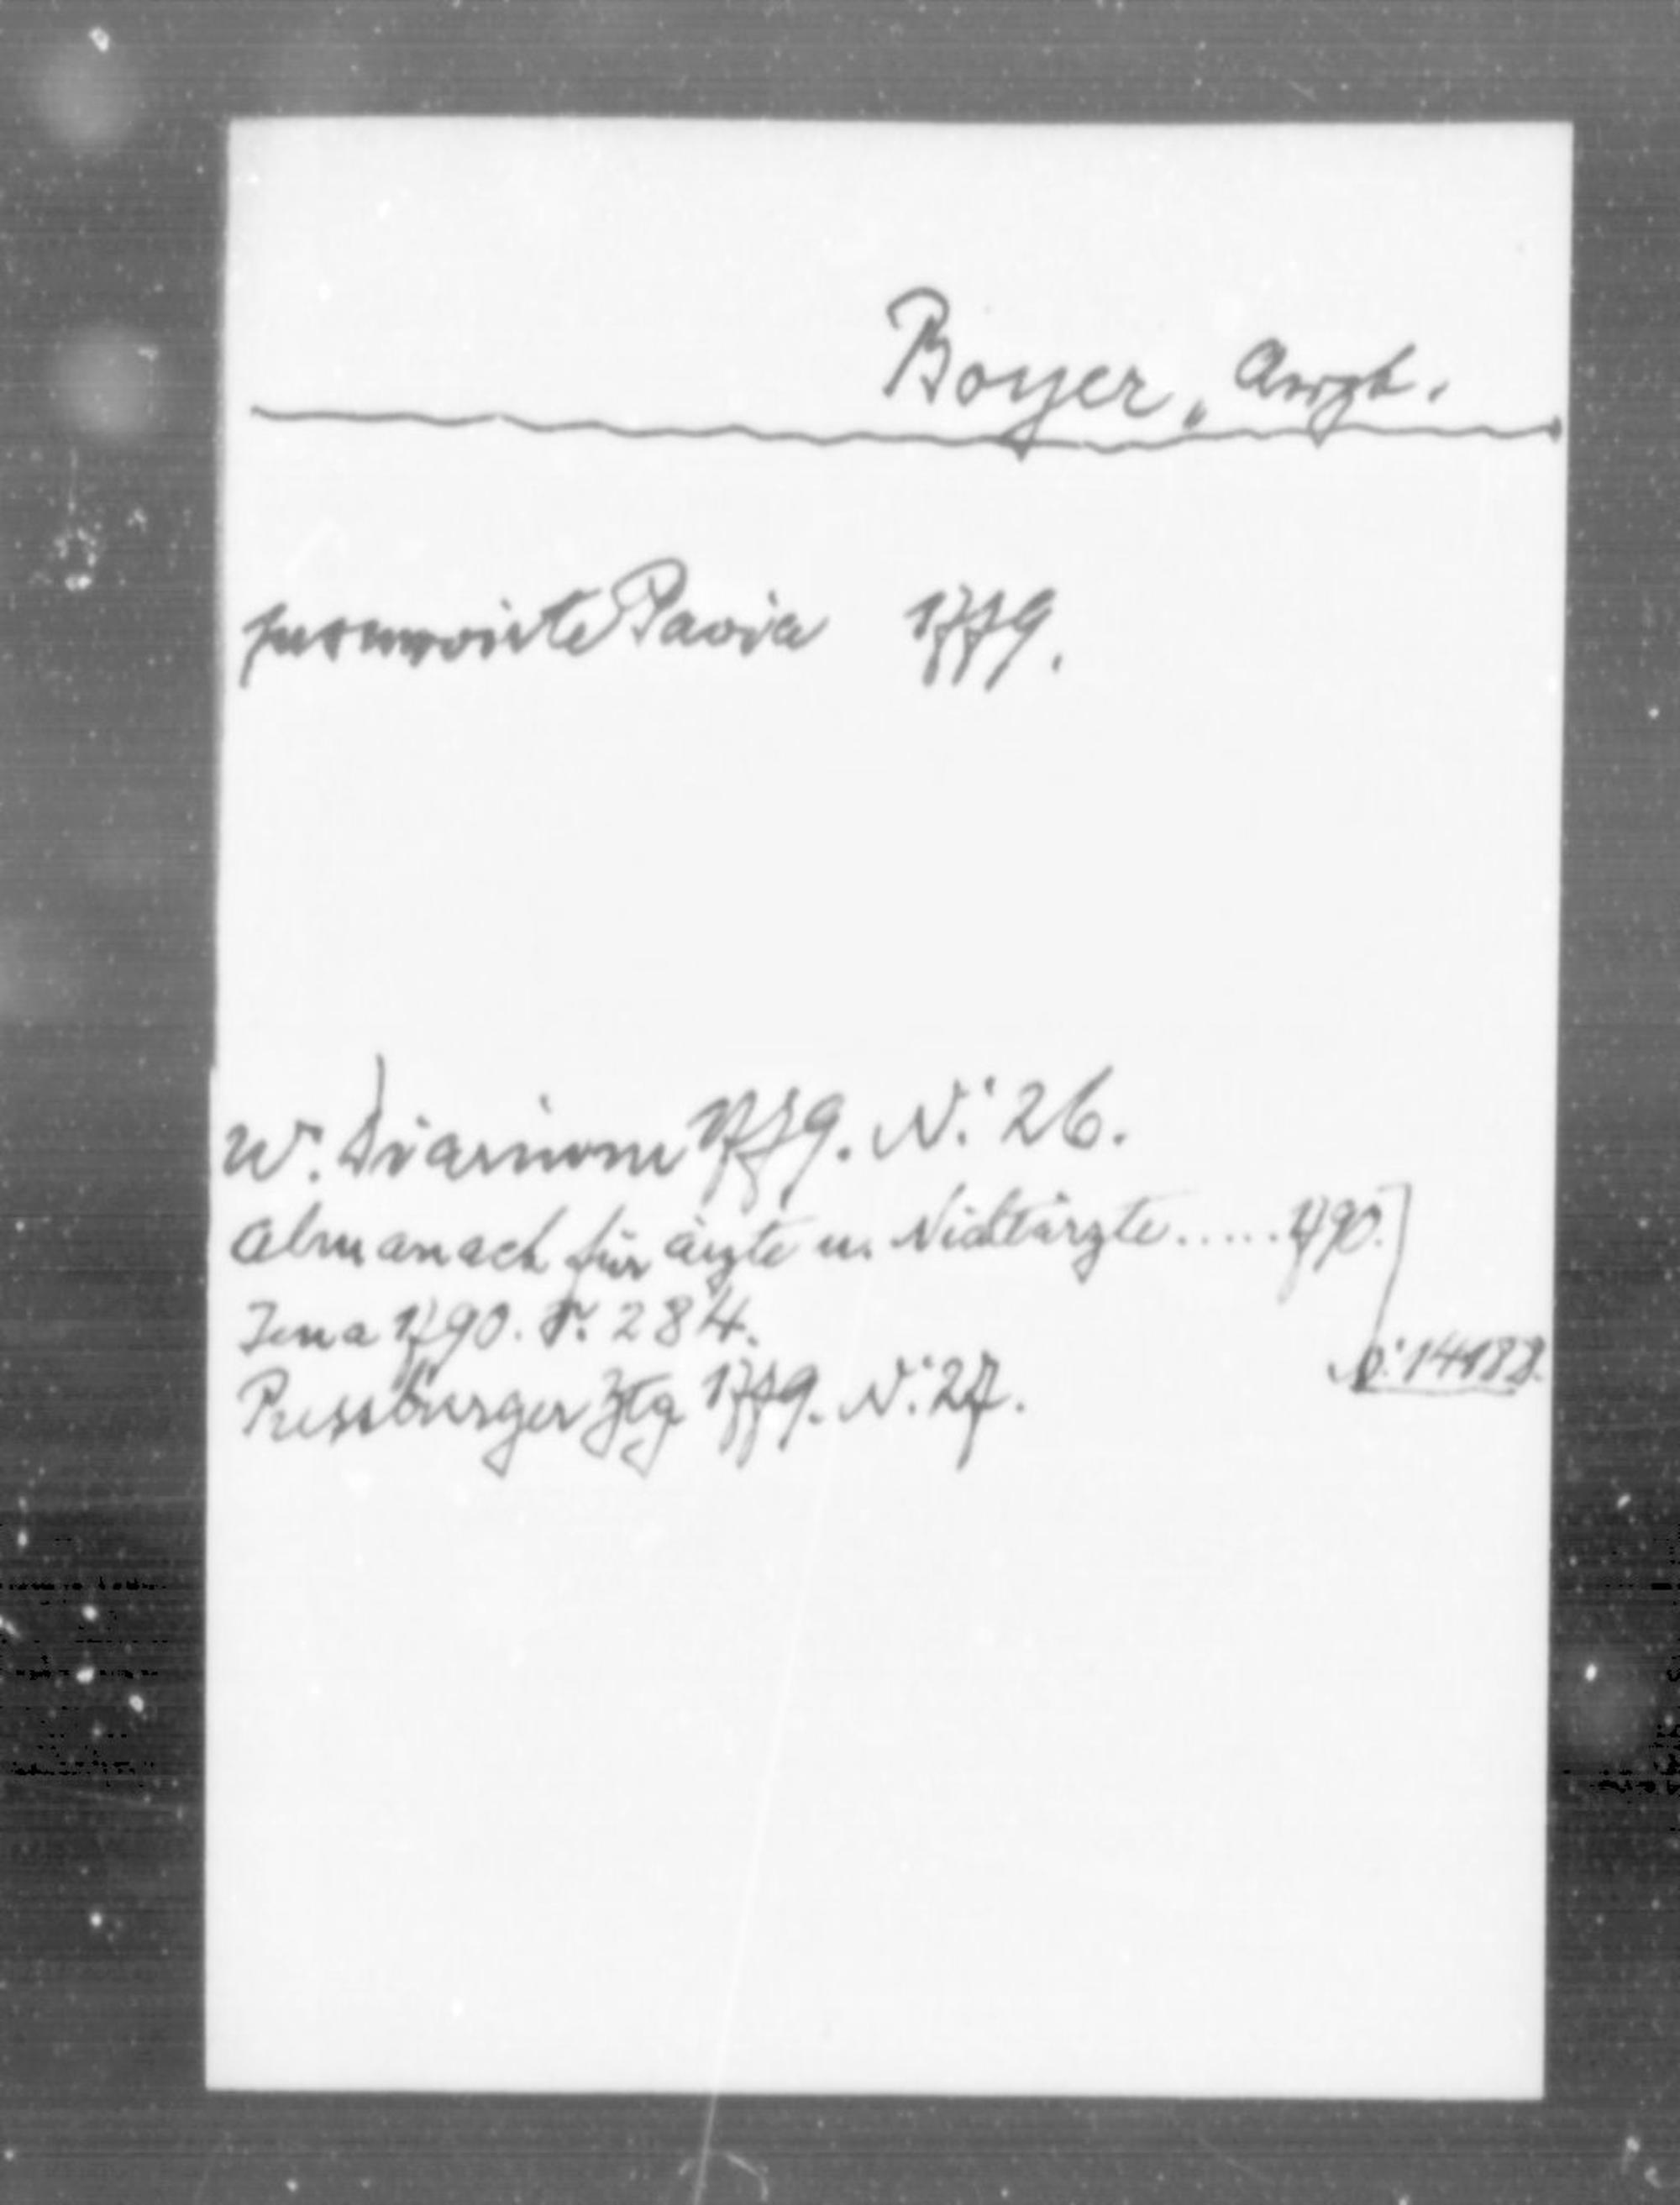 Boyer, Arzt.
promovirte Pavia 1779.
W. Diarium 1779. N: 26.
Almanach für Ärzte u. Nichtärzte.....1790.
Jena 1790. S. 284.
N: 14182.
Pressburger Ztg 1779. N: 27.